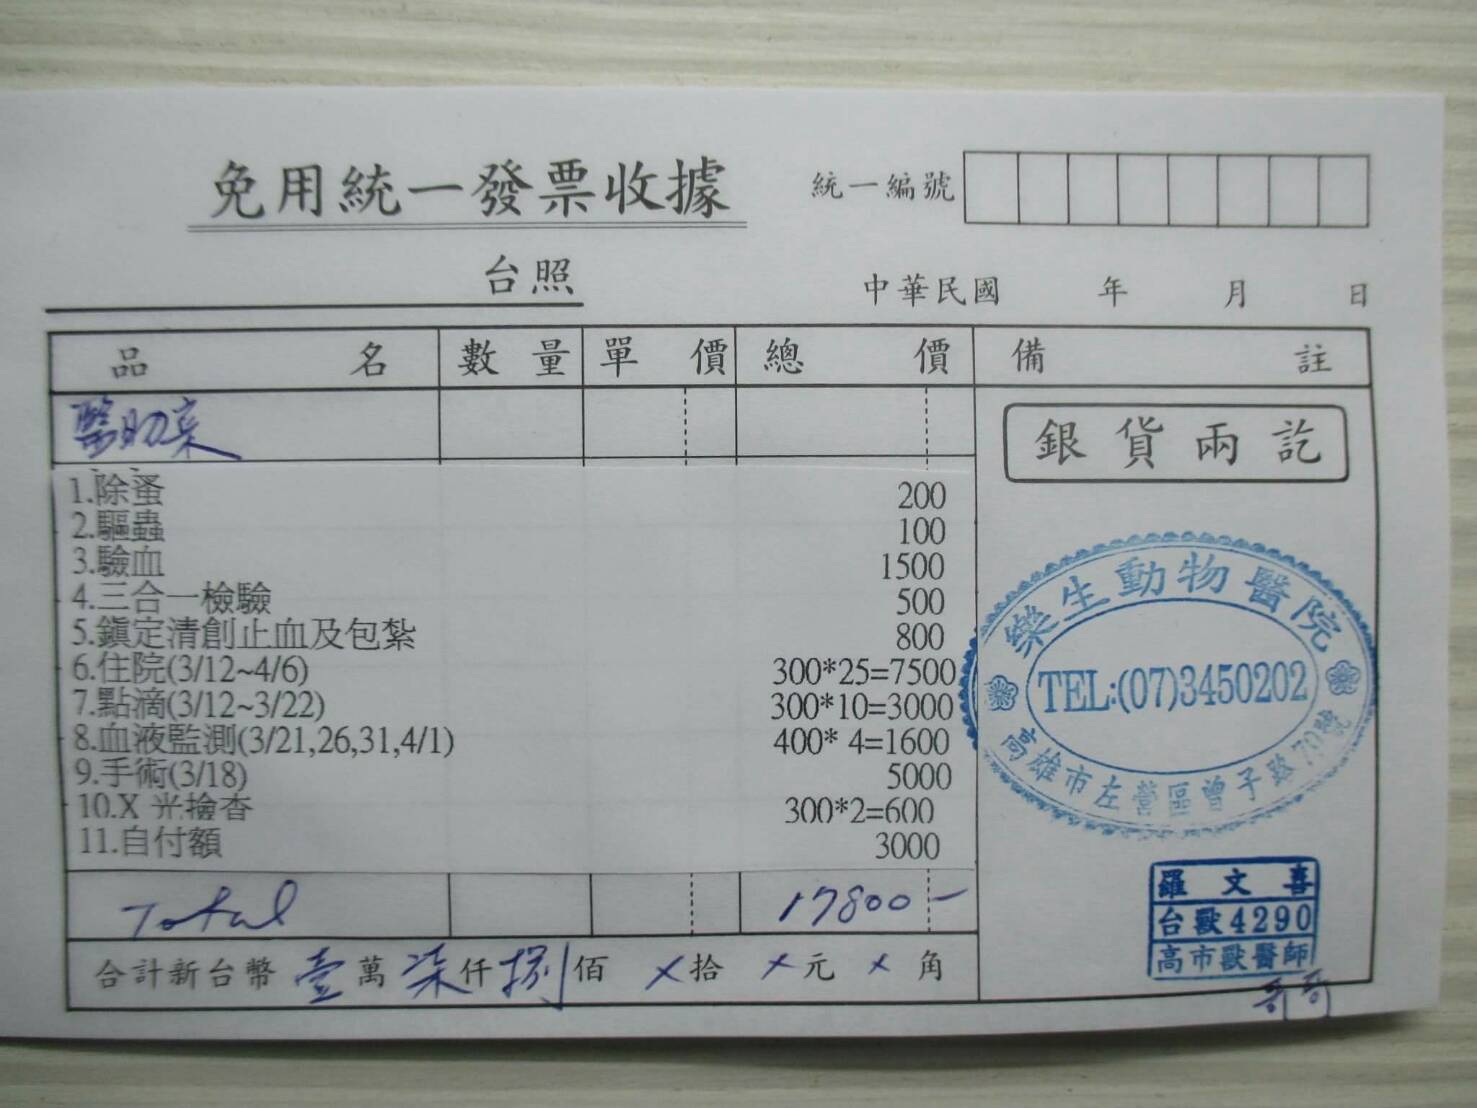 免用統一發票收據
統一編號
台照
中華民國 年 月 日
品名 數量 單價 總價 備註
醫助案
銀貨兩訖
1.除蚤 200
2.驅蟲 100
3.驗血 1500
4.三合一檢驗 500
5.鎮定清創止血及包紮 800
6.住院(3/12~4/6) 300*25=7500
7.點滴(3/12~3/22) 300*10=3000
8.血液監測(3/21,26,31,4/1) 400* 4=1600
9.手術(3/18) 5000
10.X 光檢查 300*2=600
11.自付額 3000
Total 17800-
合計新台幣 壹萬柒仟捌佰 x拾 x元 x角
樂生動物醫院
TEL:(07)3450202
高雄市左營區曾子路70號
羅文喜
台獸4290
高市獸醫師